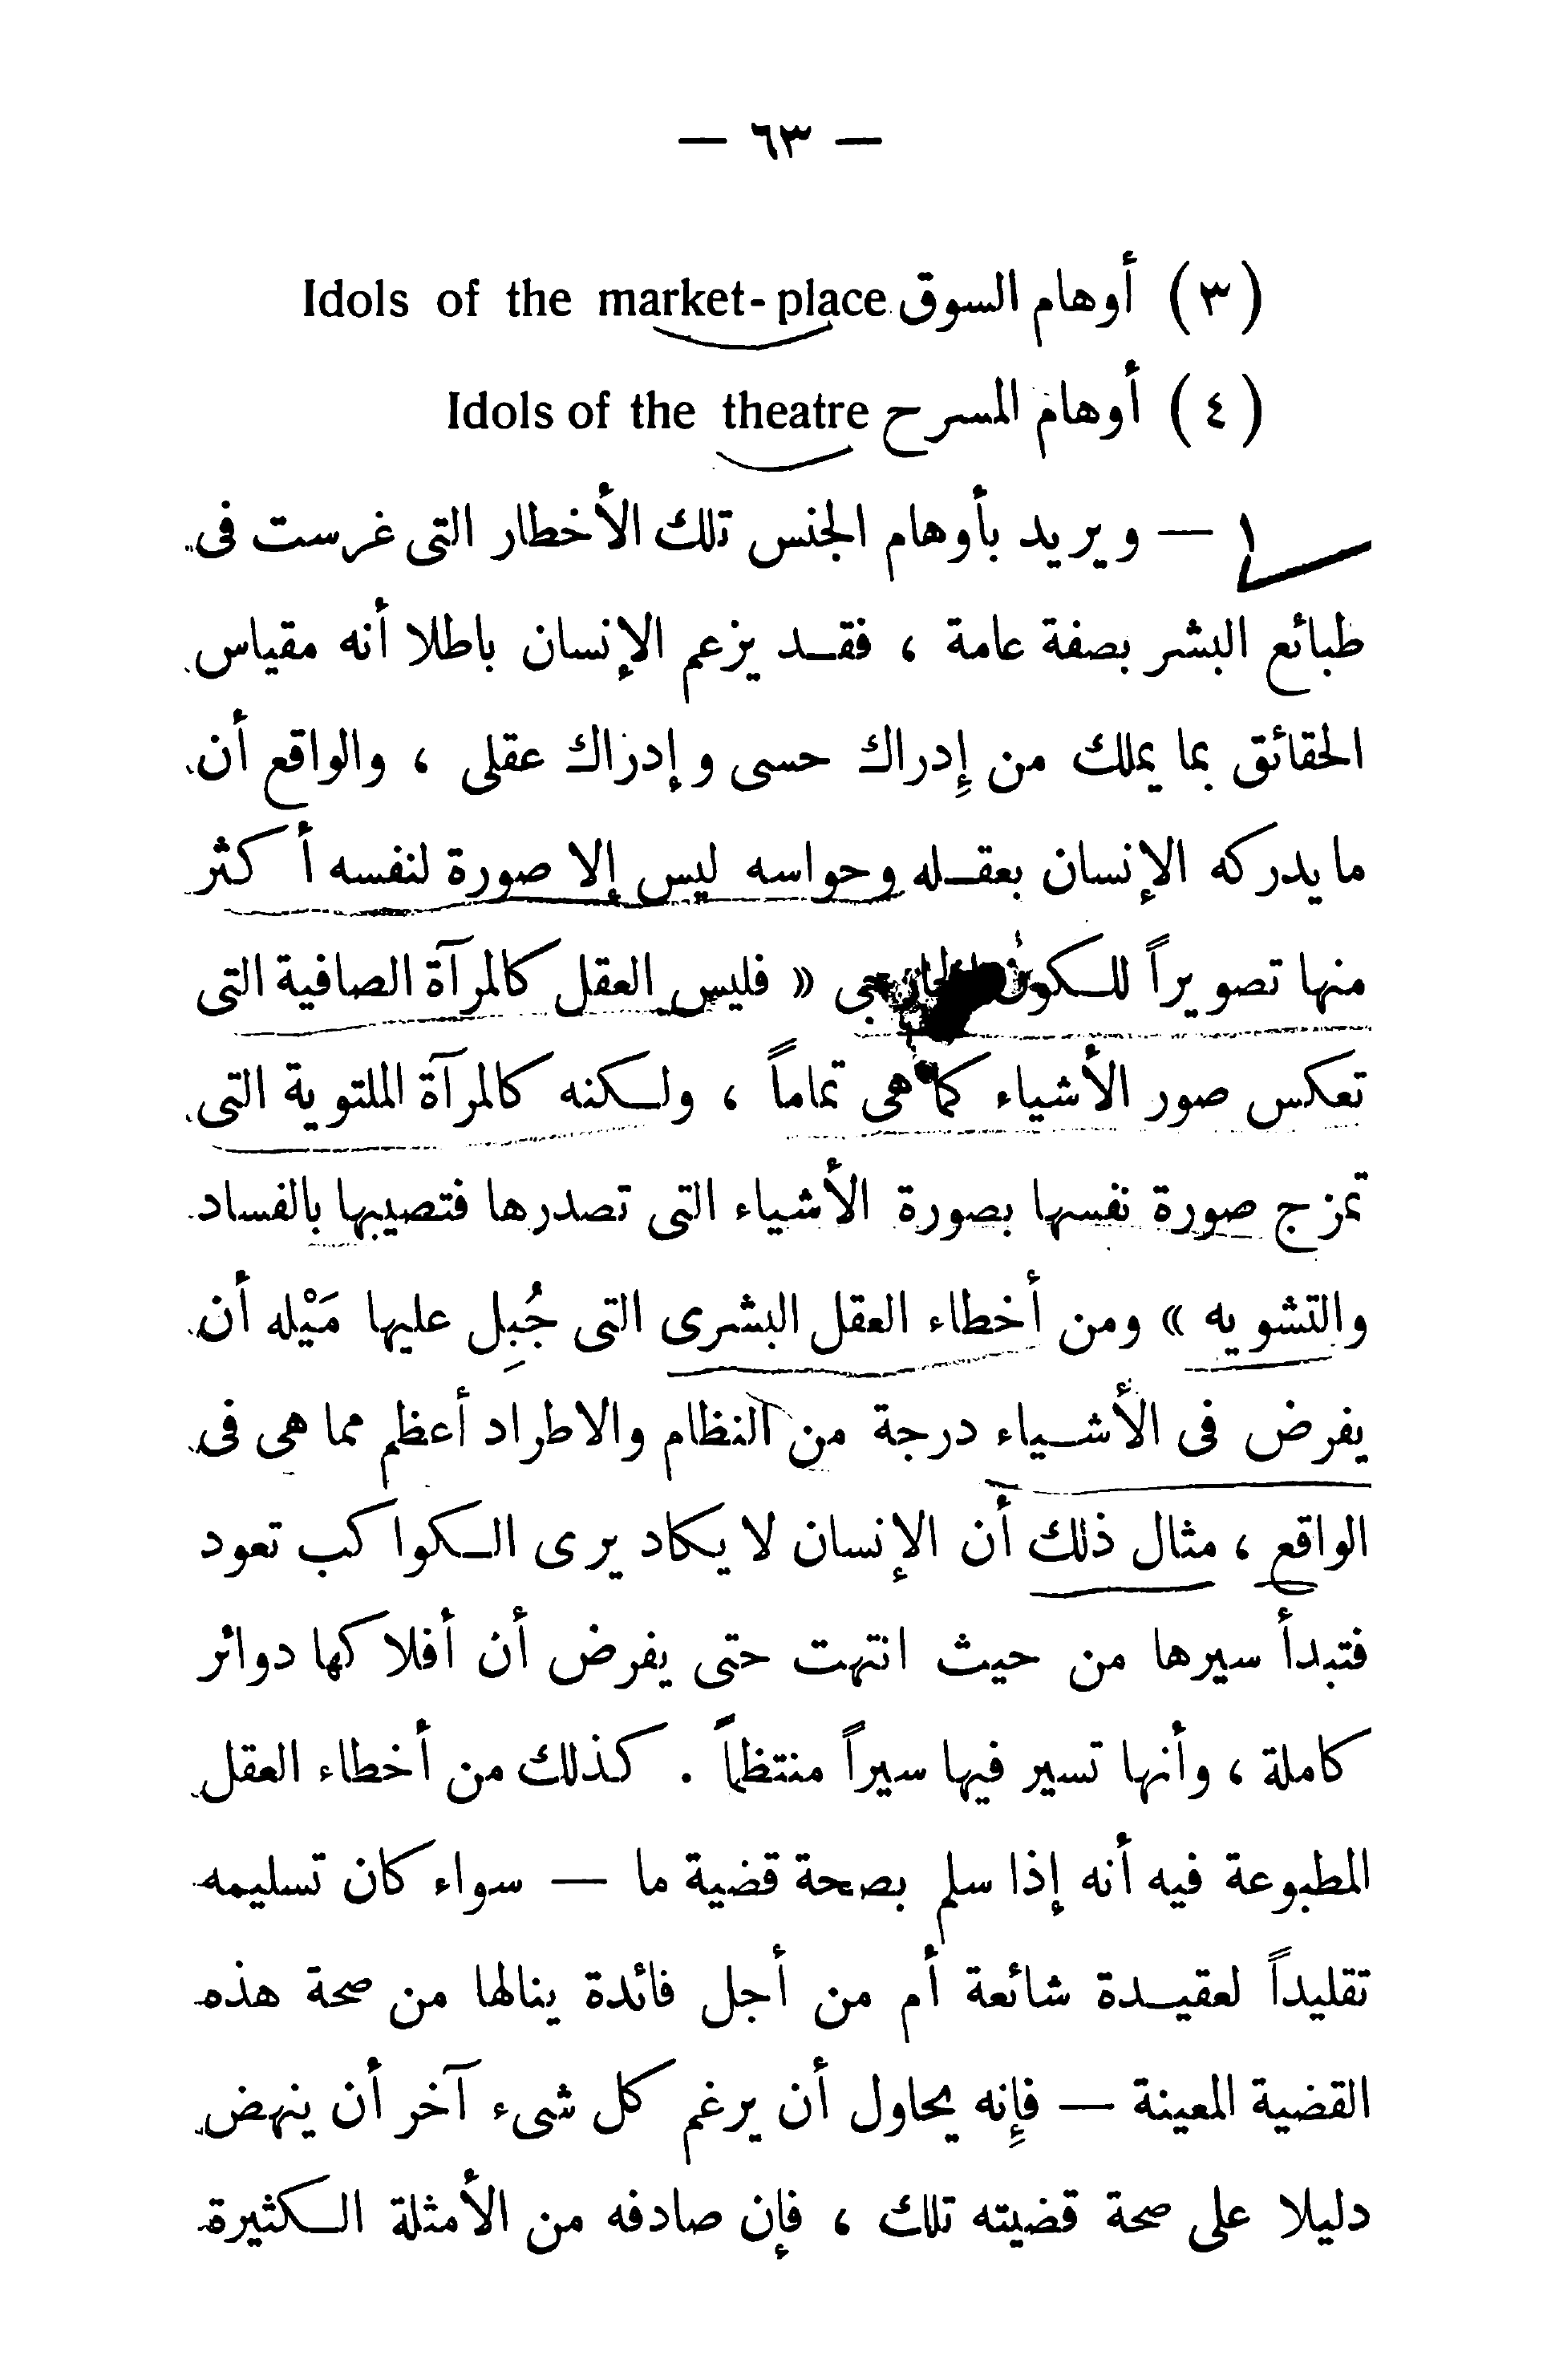 — ٦٣ —
(٣) أوهام السوق Idols of the market-place
(٤) أوهام المسرح Idols of the theatre
١ — ويريد بأوهام الجنس تلك الأخطار التى غرست فى
طبائع البشر بصفة عامة ، فقد يزعم الإنسان باطلا أنه مقياس
الحقائق بما يملك من إدراك حسى وإدراك عقلى ، والواقع أن
ما يدركه الإنسان بعقله وحواسه ليس إلا صورة لنفسه أكثر
منها تصويراً للكون الخارجى « فليس العقل كالمرآة الصافية التى
تعكس صور الأشياء كما هى تماماً ، ولكنه كالمرآة الملتوية التى
تمزج صورة نفسها بصورة الأشياء التى تصدرها فتصيبها بالفساد
والتشويه » ومن أخطاء العقل البشرى التى جُبِل عليها مَيْله أن
يفرض فى الأشياء درجة من النظام والاطراد أعظم مما هى فى
الواقع ، مثال ذلك أن الإنسان لا يكاد يرى الكواكب تعود
فتبدأ سيرها من حيث انتهت حتى يفرض أن أفلاكها دوائر
كاملة ، وأنها تسير فيها سيراً منتظماً . كذلك من أخطاء العقل
المطبوعة فيه أنه إذا سلم بصحة قضية ما — سواء كان تسليمه
تقليداً لعقيدة شائعة أم من أجل فائدة ينالها من صحة هذه
القضية المعينة — فإنه يحاول أن يرغم كل شىء آخر أن ينهض
دليلا على صحة قضيته تلك ، فإن صادفه من الأمثلة الكثيرة